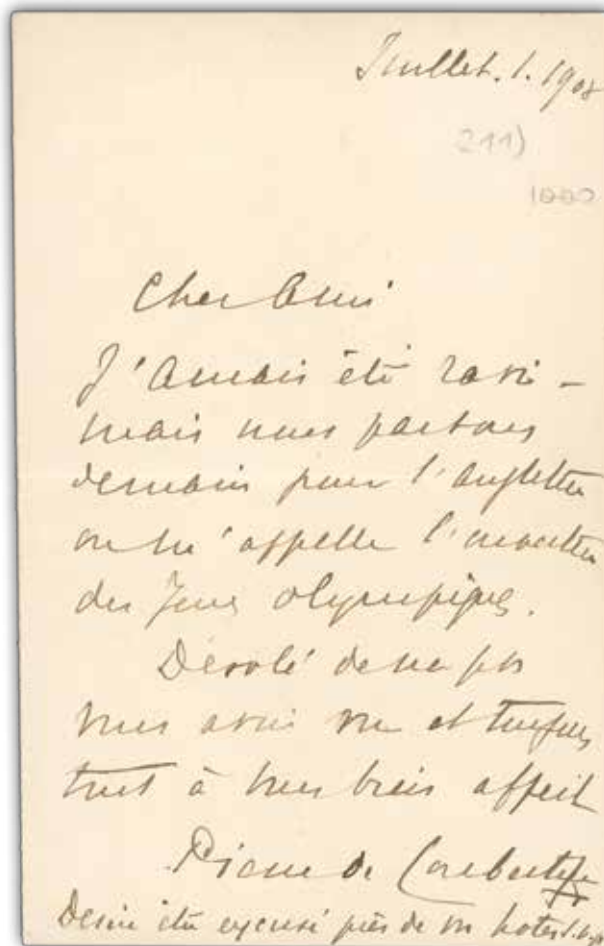 Juillet. 1. 1908
211)
1000
Cher Ami
J'aurais été ravi -
mais nous partons
demain pour l'Angleterre
où m'appelle l'ouverture
des Jeux Olympiques.
Désolé de ne pas
vous avoir vu et toujours
tout à vous bien affect
Pierre de Coubertin
être excusé près de vos hotes s.v.p